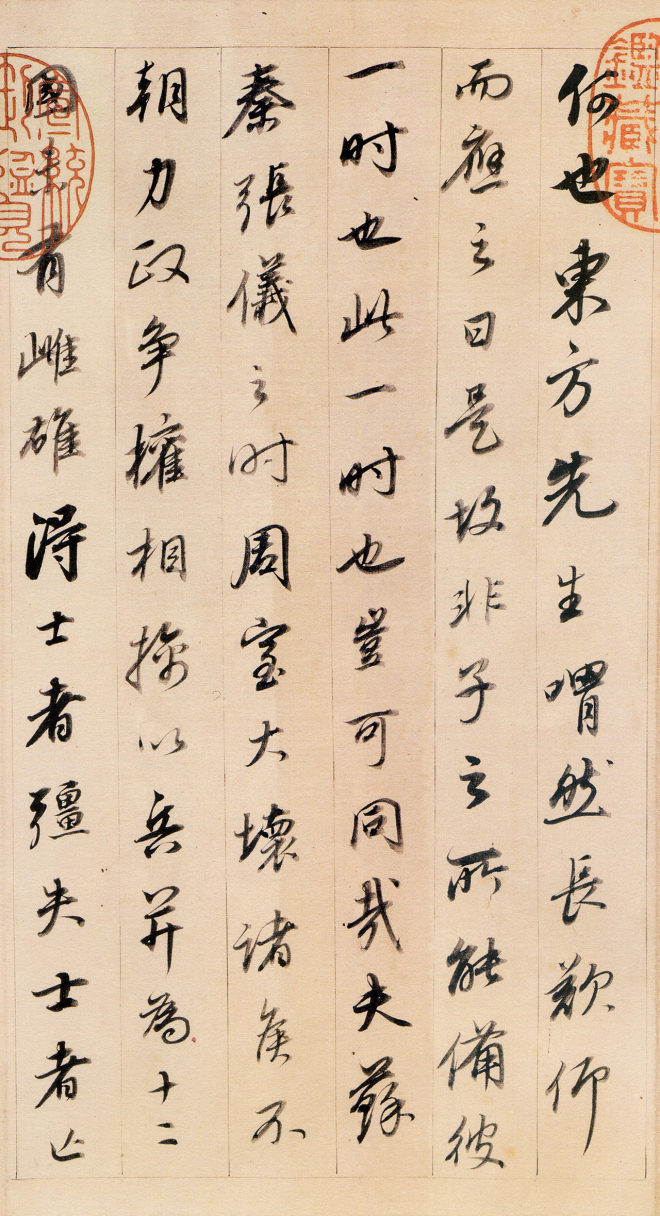 何也東方先生喟然長歎仰
而應之曰是故非子之所能備彼
一時也此一時也豈可同哉夫蘇
秦張儀之時周室大壞諸侯不
朝力政爭權相擒以兵并為十二
國未有雌雄得士者彊失士者亡
鑑藏寶